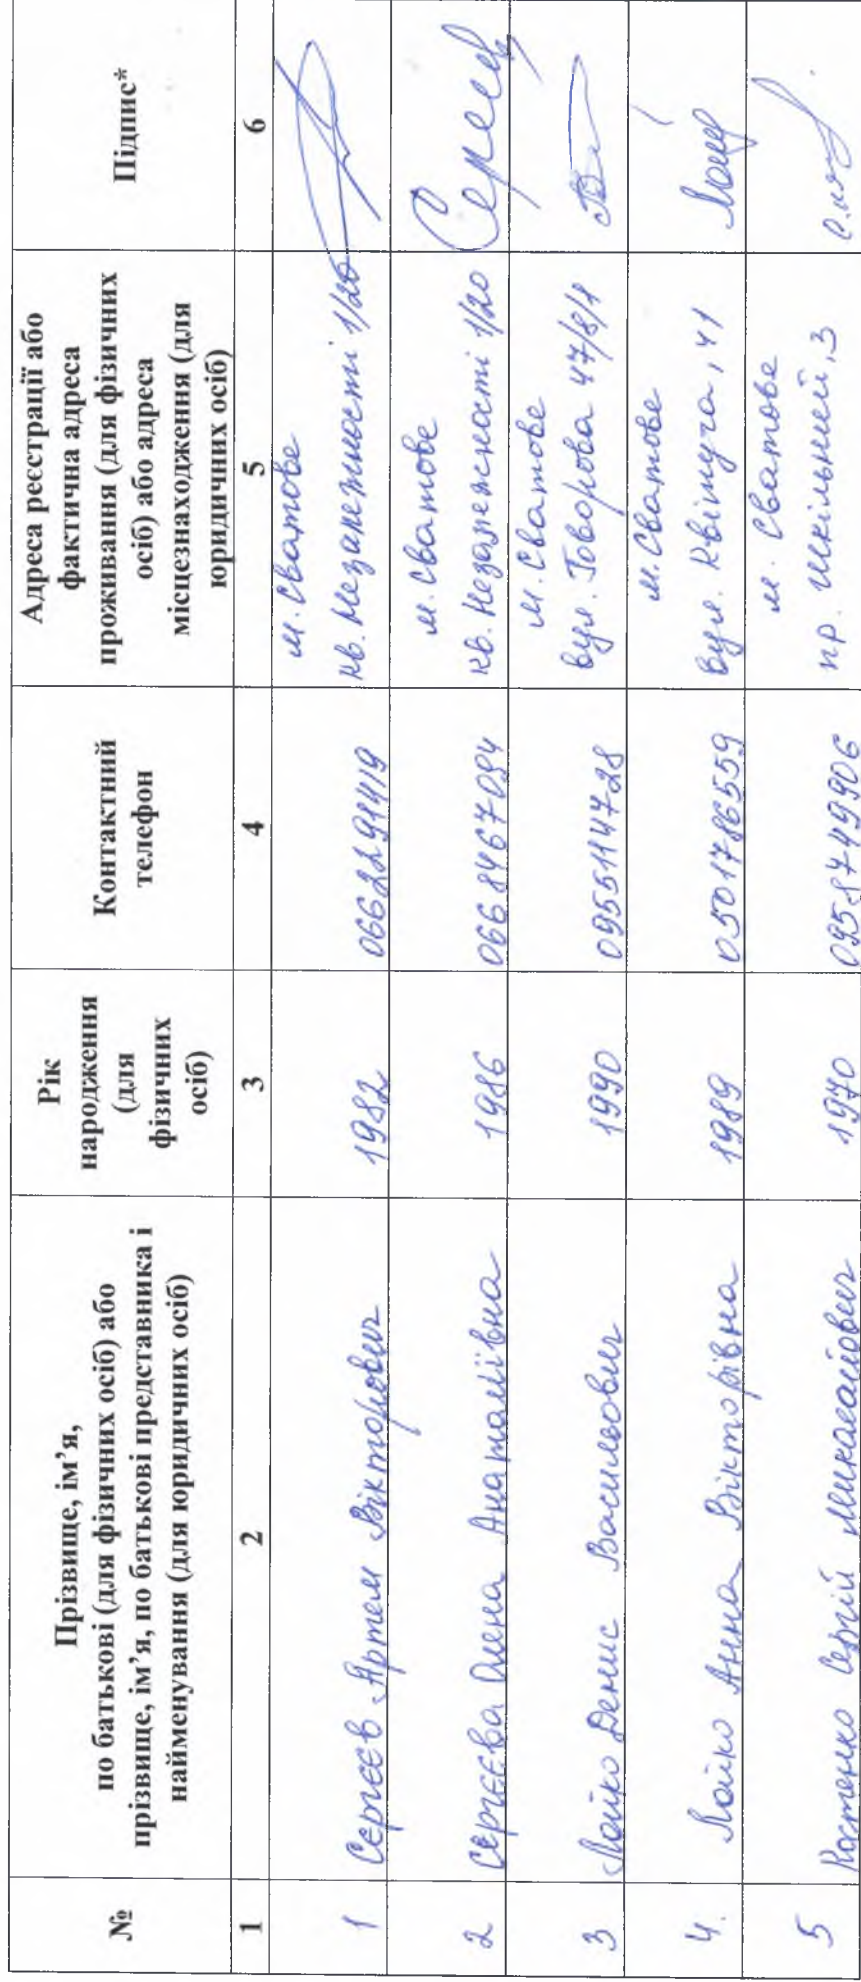 №
Прізвище, ім’я,
по батькові (для фізичних осіб) або
прізвище, ім’я, по батькові представника і
найменування (для юридичних осіб)
Рік
народження
(для
фізичних
осіб)
Контактний
телефон
Адреса реєстрації або
фактична адреса
проживання (для фізичних
осіб) або адреса
місцезнаходження (для
юридичних осіб)
Підпис*
1 2 3 4 5 6
1 Сергєєв Артем Вікторович 1982 0662291419 м. Сватове
кв. Незалежності 1/20
2 Сергєєва Олена Анатоліївна 1986 0668467094 м. Сватове
кв. Незалежності 1/20
3 Лойко Денис Васильович 1990 0955114728 м. Сватове
вул. Говорова 47/8/1
4. Лойко Анна Вікторівна 1989 0501786559 м. Сватове
вул. 41
5 Костенко Сергій Миколайович 1970 0958749906 м. Сватове
пр. Шкільний, 3